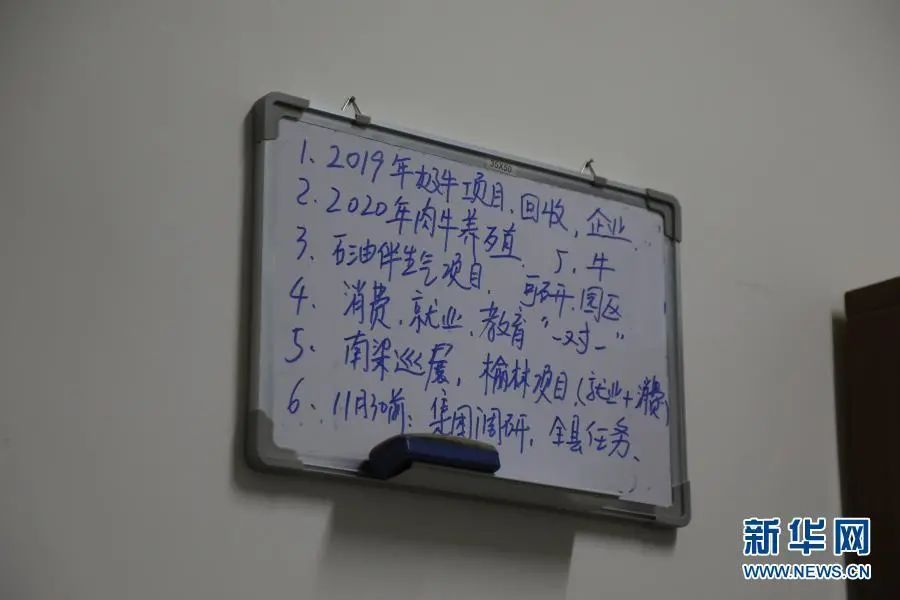 35×50
1、2019年极牛项目、回收，企业
2、2020年肉牛养殖、厂、牛
3、石油伴生气项目，可研、园区
4、消费、就业、教育“一对一”
5、南梁巡展，榆林项目(就业+消费)
6、11月30前：集团调研，全县任务、
新华网
WWW.NEWS.CN